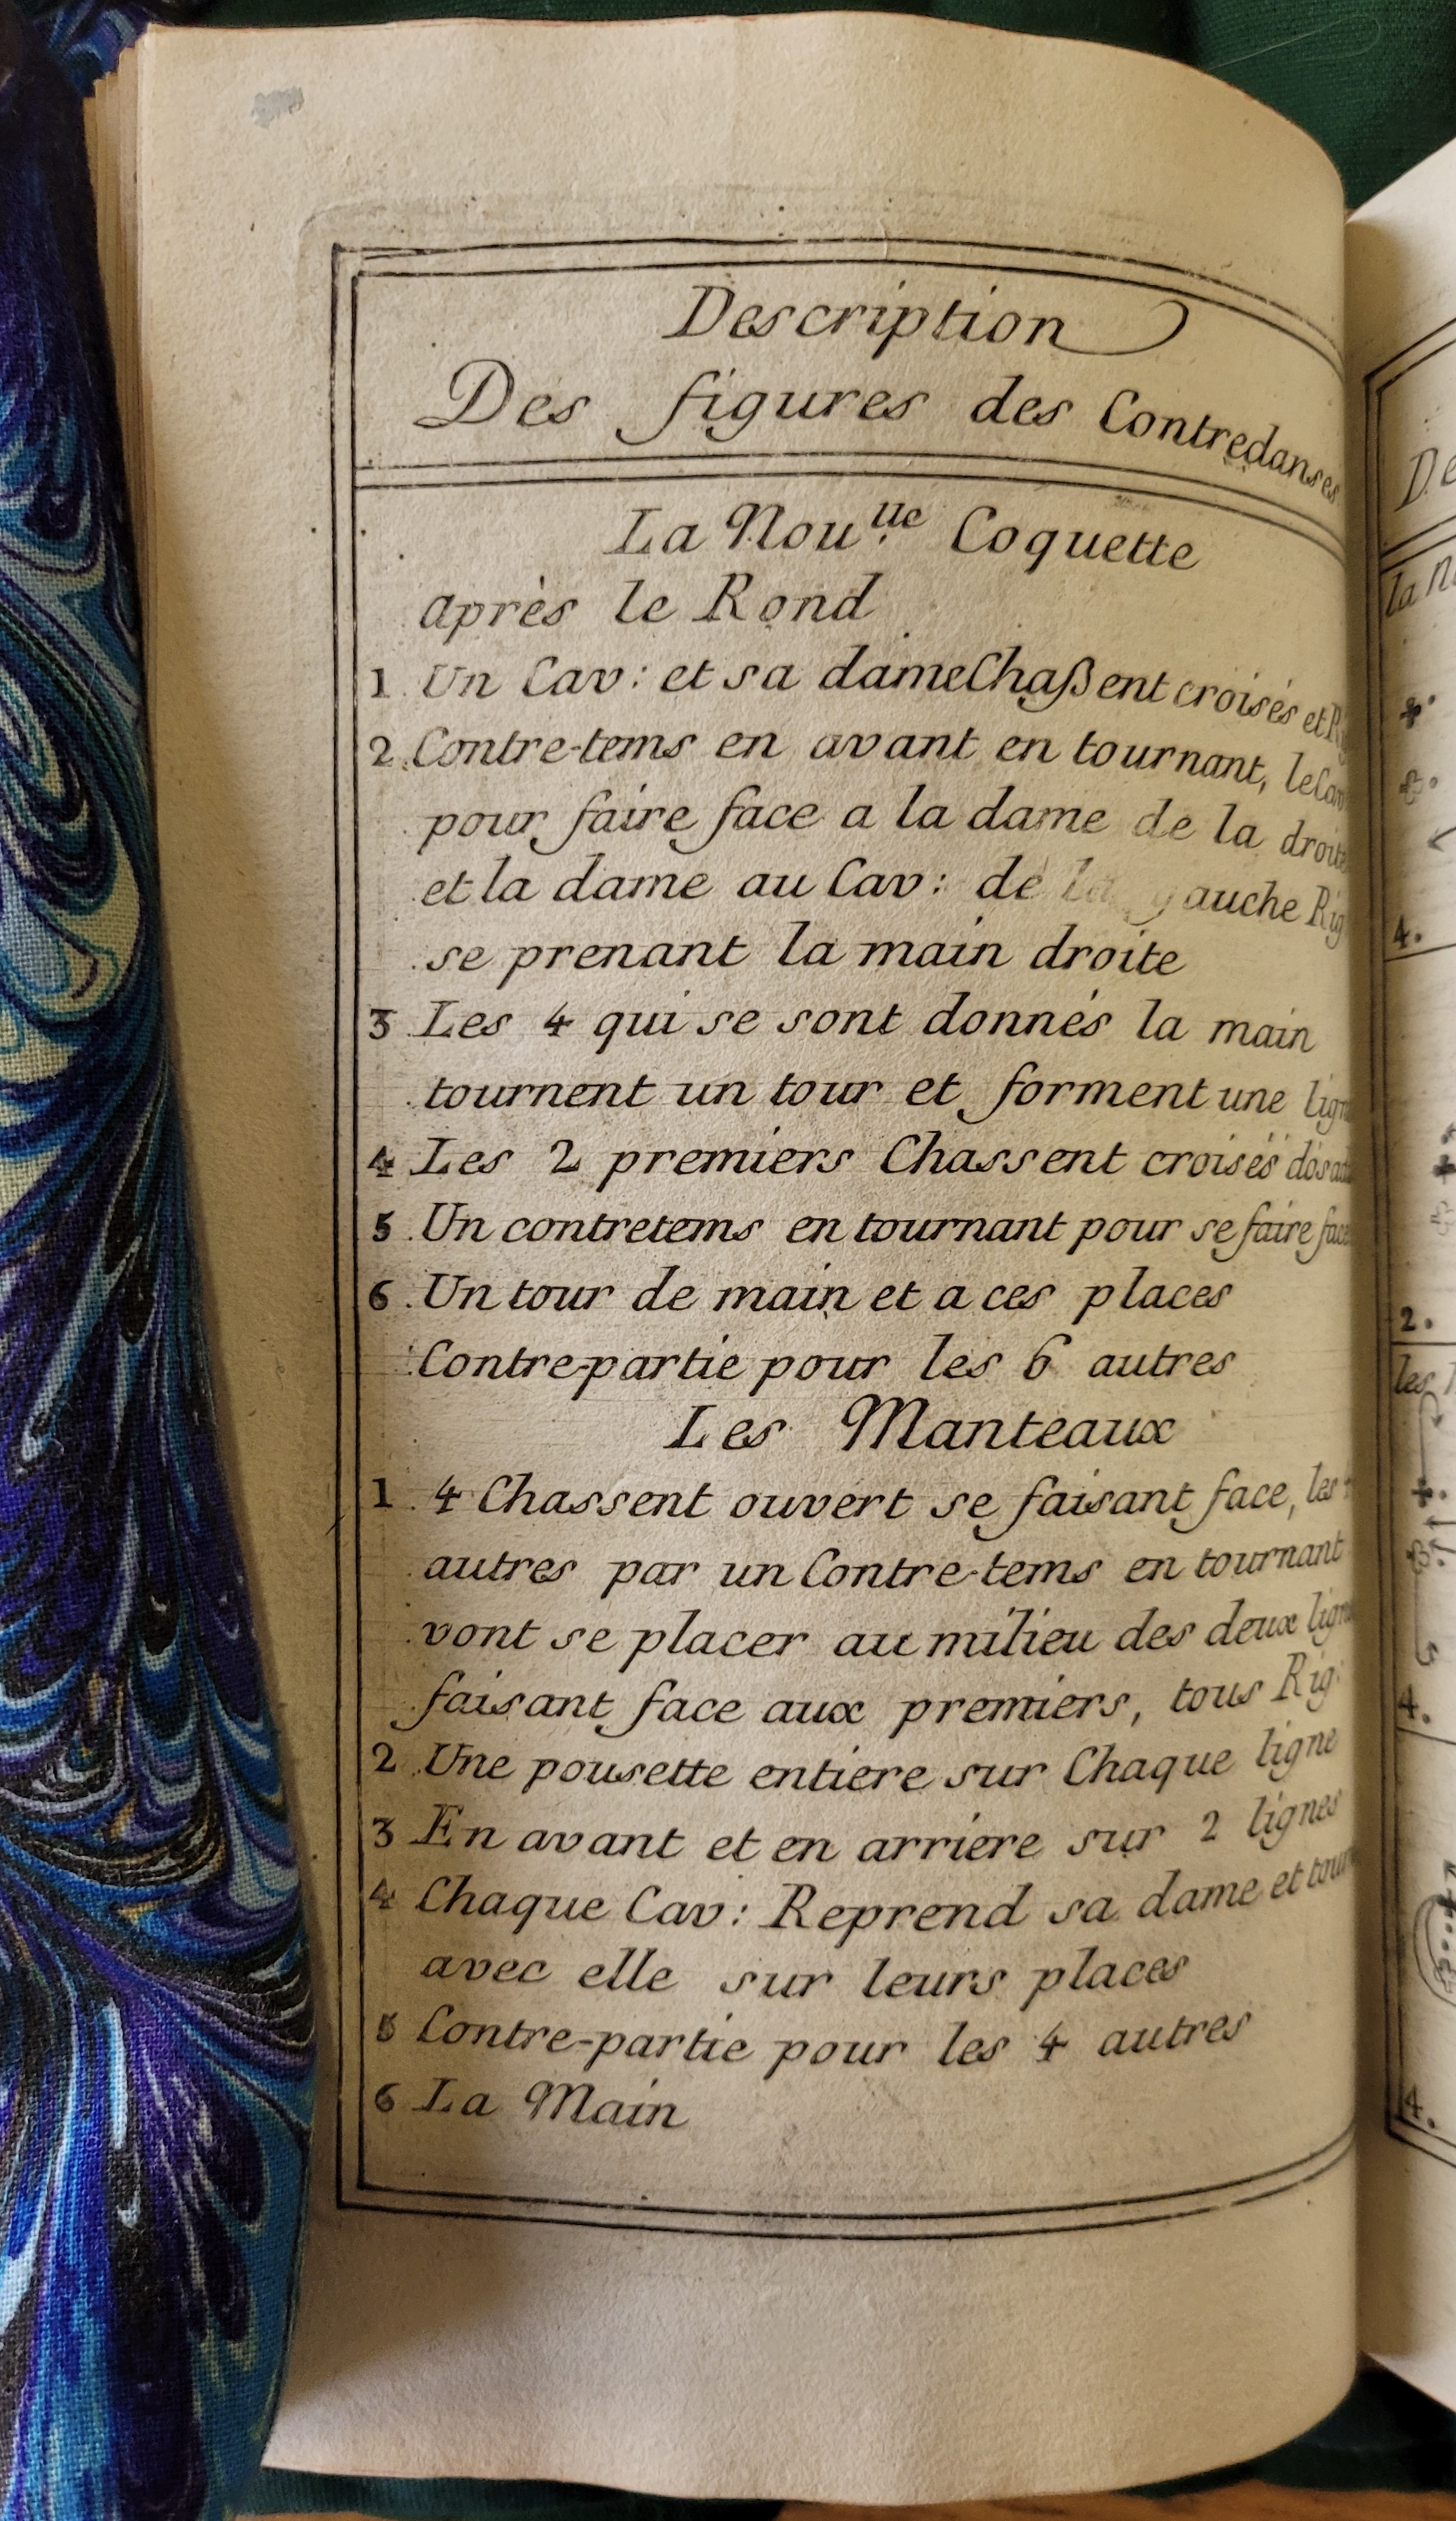 Description
Des figures des Contredanses
La Nou.lle Coquette
après le Rond
1 Un Cav: et sa dame Chaßent croisés et
2 Contre-tems en avant en tournant, le Cav
pour faire face a la dame de la droite
et la dame au Cav: de la gauche Rig
se prenant la main droite
3 Les 4 qui se sont donnés la main
tournent un tour et forment une ligne
4 Les 2 premiers Chassent croisés dos a
5 Un contretems en tournant pour se faire face
6 Un tour de main et a ces places
Contre-partie pour les 6 autres
Les Manteaux
1 4 Chassent ouvert se faisant face, les
autres par un Contre-tems en tournant
vont se placer au milieu des deux lignes
faisant face aux premiers, tous Rig:
2 Une pousette entiere sur Chaque ligne
3 En avant et en arriere sur 2 lignes
4 Chaque Cav: Reprend sa dame et tour
avec elle sur leurs places
5 Contre-partie pour les 4 autres
6 La Main
De
la N
4.
2.
les
4.
4.